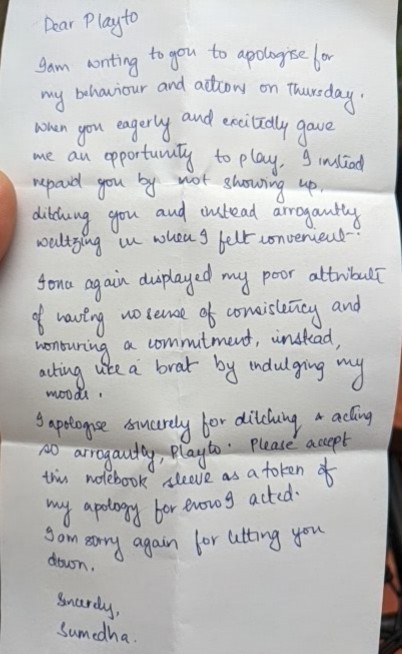 Dear Playto
I am writing to you to apologise for
my behaviour and actions on Thursday.
When you eagerly and excitedly gave
me an opportunity to play, I instead
repaid you by not showing up,
ditching you and instead arrogantly
waltzing in when I felt convenient.
I once again displayed my poor attribute
of having no sense of consistency and
honouring a commitment, instead,
acting like a brat by indulging my
moods.
I apologise sincerely for ditching & acting
so arrogantly, Playto. Please accept
this notebook sleeve as a token of
my apology for how I acted.
I am sorry again for letting you
down.
Sincerely,
Sumedha.